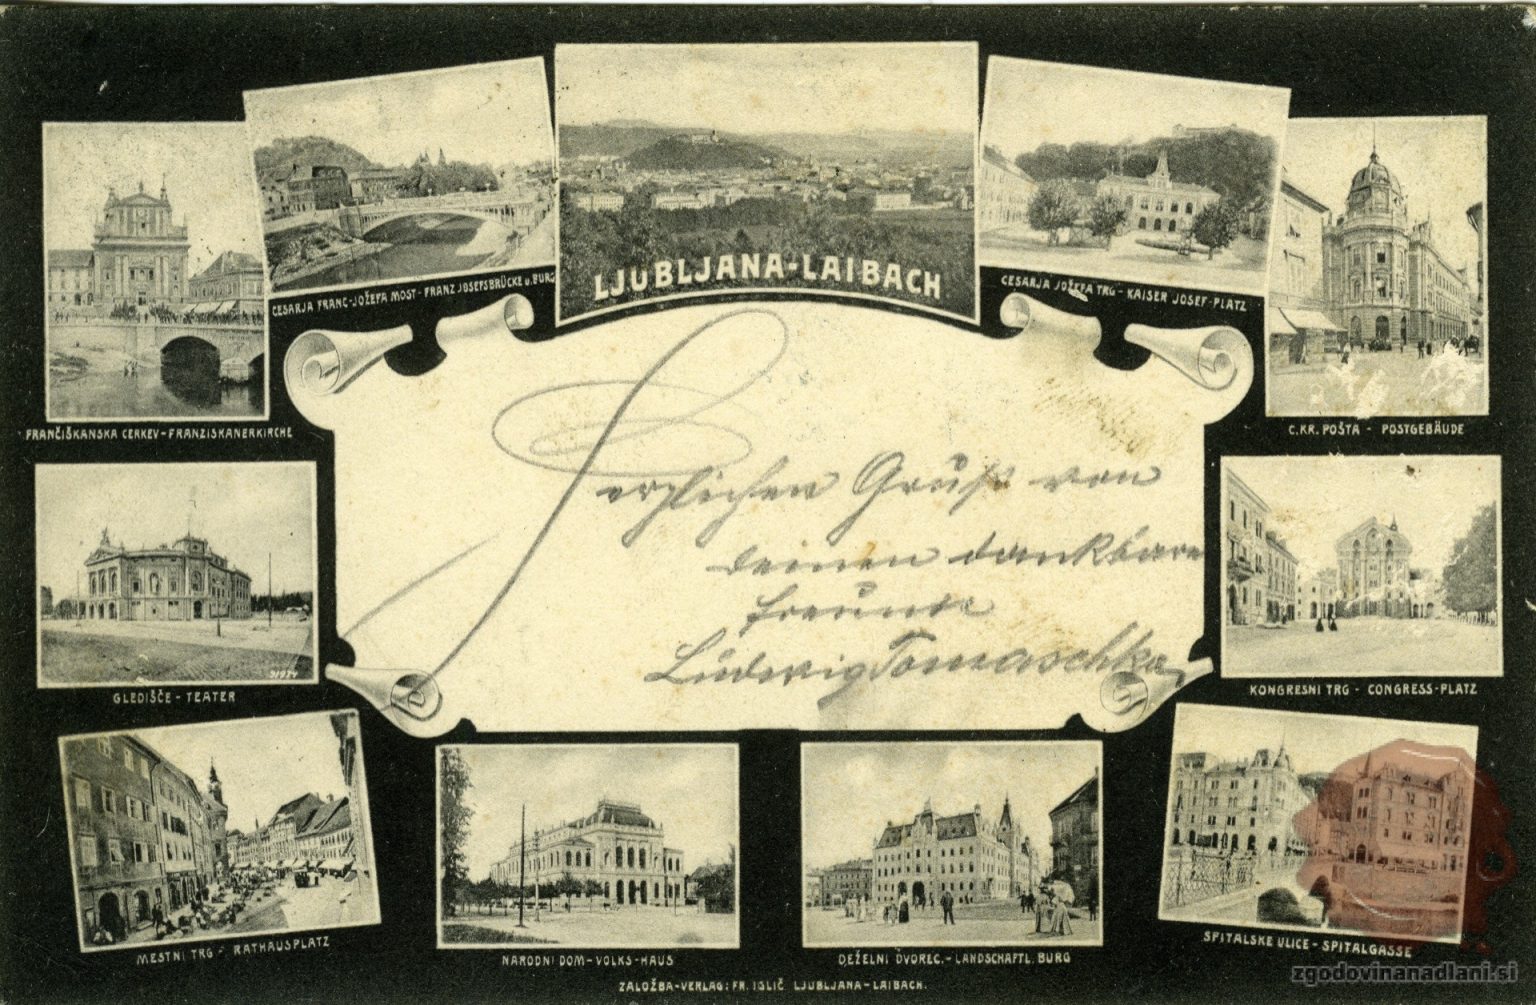 LJUBLJANA-LAIBACH
CESARJA FRANC-JOŽEFA MOST-FRANZ JOSEFSBRÜCKE u. BURG
CESARJA JOŽEFA TRG - KAISER JOSEF-PLATZ
FRANČIŠKANSKA CERKEV-FRANZISKANERKIRCHE
C. KR. POŠTA - POSTGEBÄUDE
Herzlichen Gruß von
deinen dankbare
freunde
Ludwig Tomaschka
GLEDIŠČE - TEATER
KONGRESNI TRG - CONGRESS-PLATZ
MESTNI TRG - RATHAUSPLATZ
NARODNI DOM-VOLKS-HAUS
DEŽELNI DVOREC.-LANDSCHAFTL. BURG
SPITALSKE ULICE-SPITALGASSE
ZALOŽBA-VERLAG: FR. IGLIČ LJUBLJANA-LAIBACH.
zgodovinanadlani.si